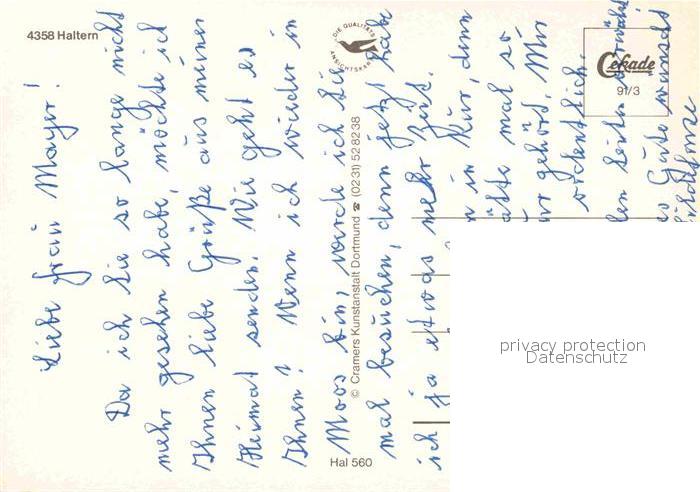 4358 Haltern
DIE QUALITÄTS
ANSICHTSKARTE
Cekade
91/3
Liebe Frau Mayer!
Da ich Sie so lange nicht
mehr gesehen habe, möchte ich
Ihnen liebe Grüße aus meiner
Heimat senden. Wie geht es
Ihnen? Wenn ich wieder in
Moos bin, werde ich Sie
mal besuchen, denn jetzt habe
ich ja etwas mehr Zeit.
in Kur, denn
mal so
gehört. Mir
ordentlich.
Gute wünscht
© Cramers Kunstanstalt Dortmund ☎ (0231) 528238
Hal 560
privacy protection
Datenschutz